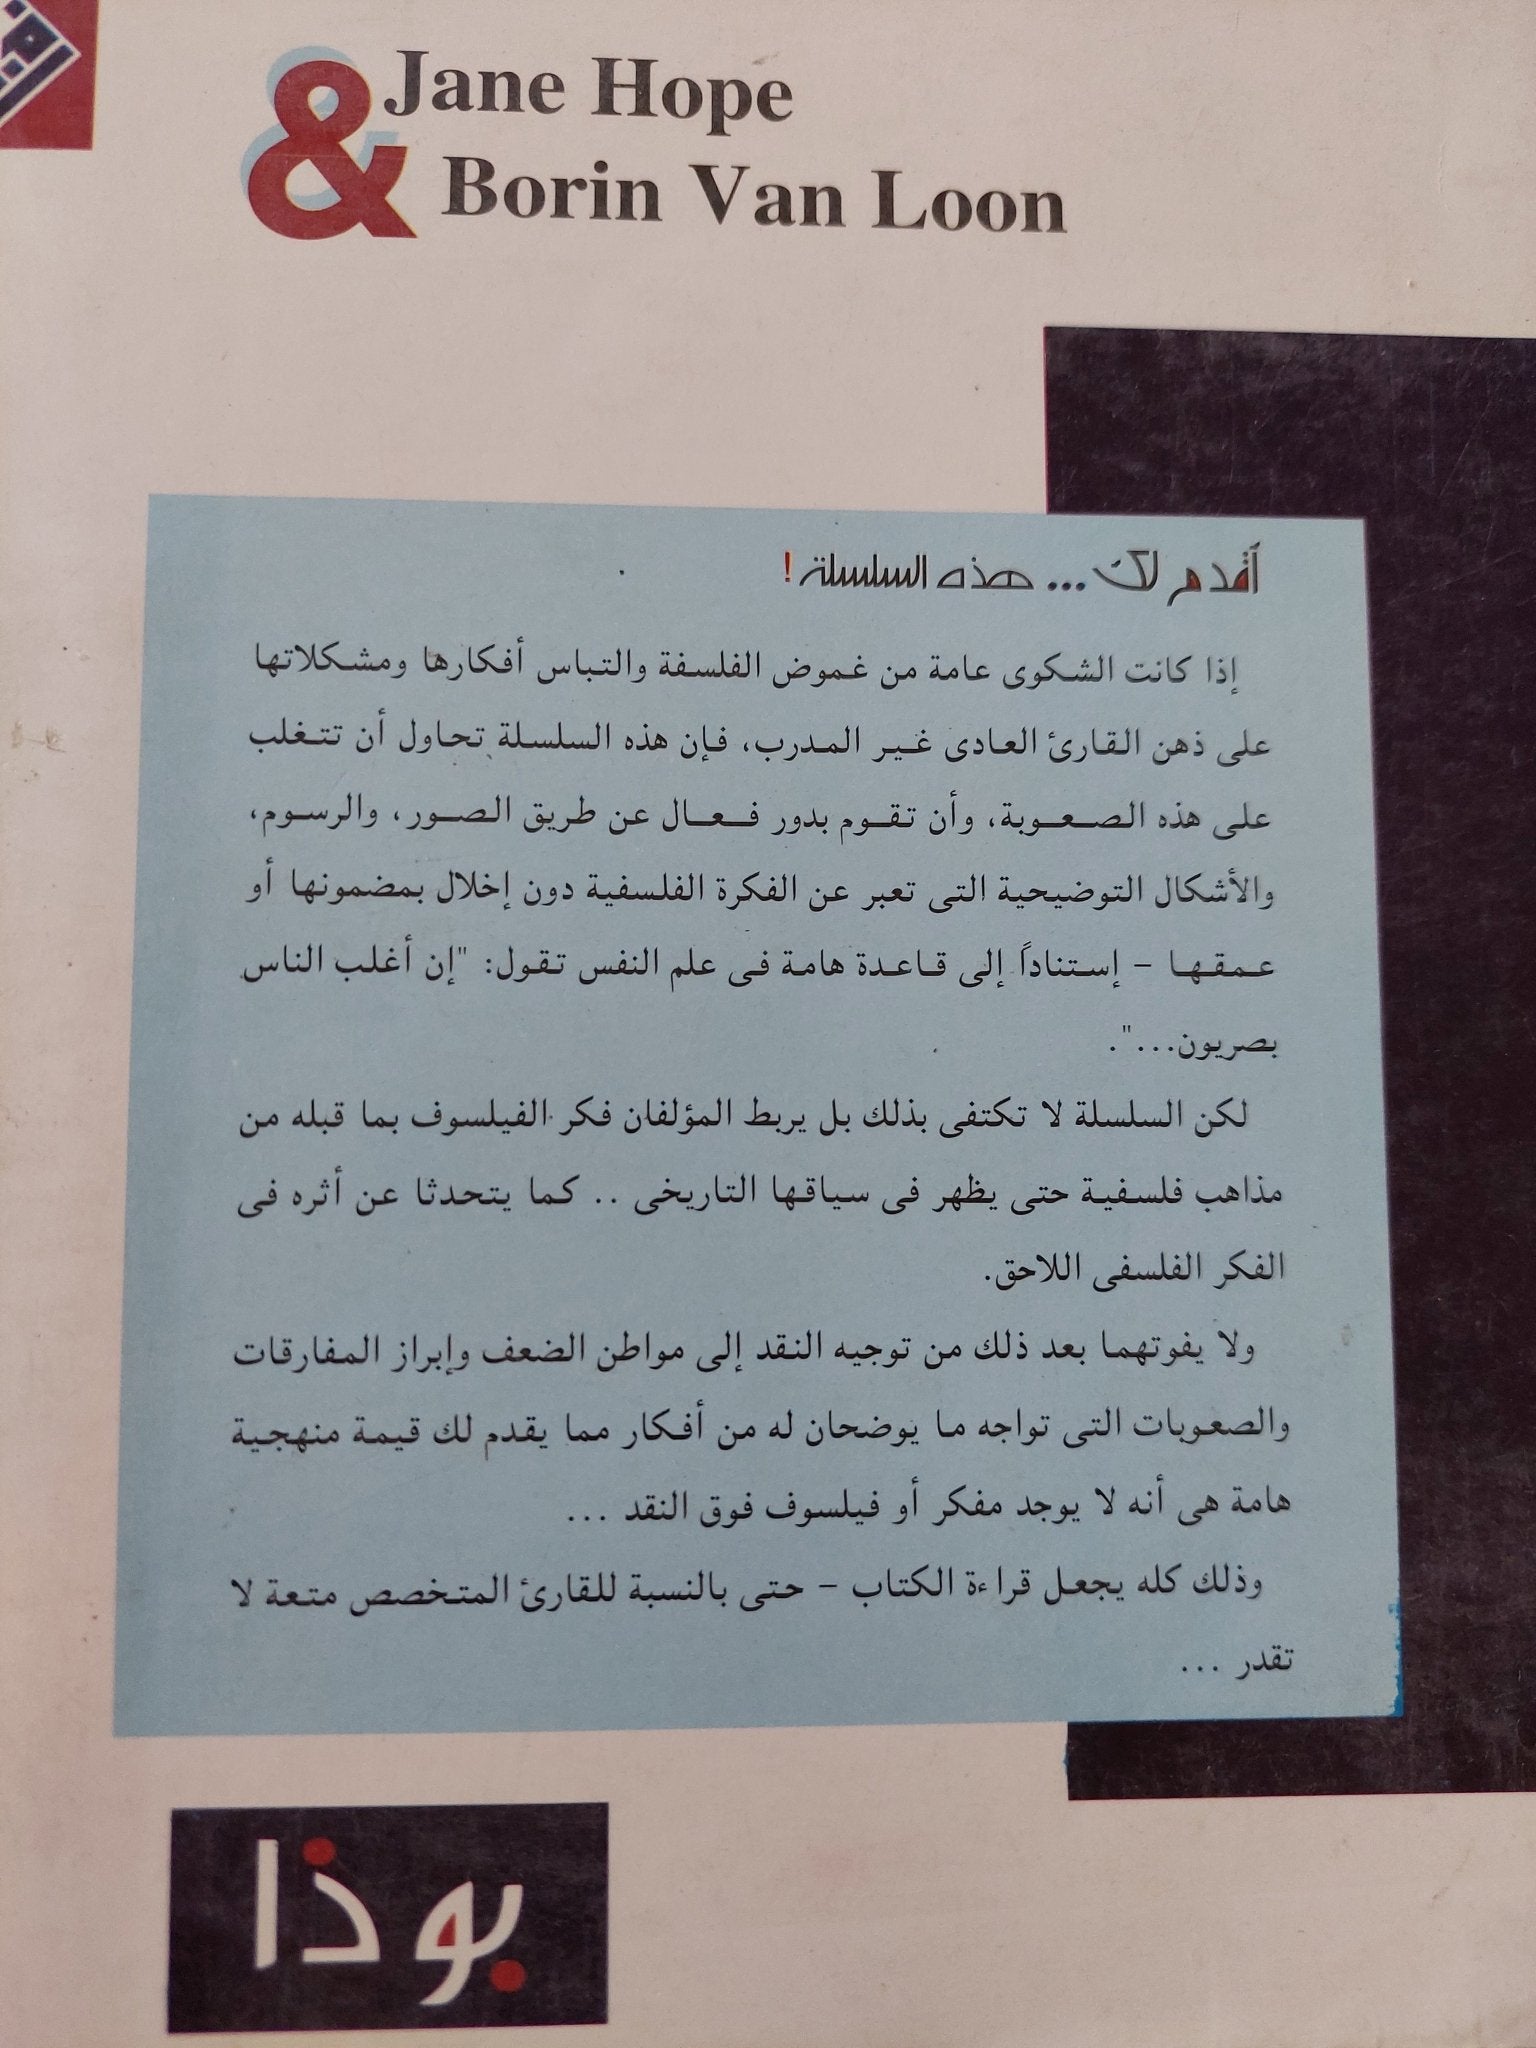 Jane Hope
&
Borin Van Loon
أقدم لك ... هذه السلسلة !
إذا كانت الشكوى عامة من غموض الفلسفة والتباس أفكارها ومشكلاتها
على ذهن القارئ العادى غير المدرب، فإن هذه السلسلة تحاول أن تتغلب
على هذه الصعوبة، وأن تقوم بدور فعال عن طريق الصور، والرسوم،
والأشكال التوضيحية التى تعبر عن الفكرة الفلسفية دون إخلال بمضمونها أو
عمقها - إستناداً إلى قاعدة هامة فى علم النفس تقول: "إن أغلب الناس
بصريون...".
لكن السلسلة لا تكتفى بذلك بل يربط المؤلفان فكر الفيلسوف بما قبله من
مذاهب فلسفية حتى يظهر فى سياقها التاريخى .. كما يتحدثا عن أثره فى
الفكر الفلسفى اللاحق.
ولا يفوتهما بعد ذلك من توجيه النقد إلى مواطن الضعف وإبراز المفارقات
والصعوبات التى تواجه ما يوضحان له من أفكار مما يقدم لك قيمة منهجية
هامة هى أنه لا يوجد مفكر أو فيلسوف فوق النقد ...
وذلك كله يجعل قراءة الكتاب - حتى بالنسبة للقارئ المتخصص متعة لا
تقدر ...
بوذا